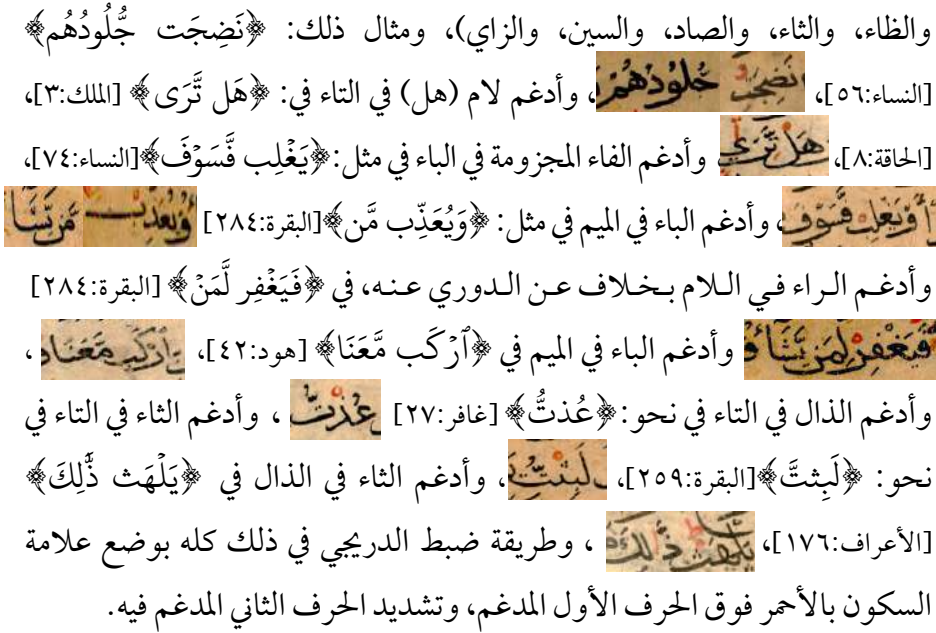 والظاء، والثاء، والصاد، والسين، والزاي)، ومثال ذلك: ﴿نَضِجَت جُّلُودُهُم﴾
[النساء:٥٦]، نضجت جلودهم، وأدغم لام (هل) في التاء في: ﴿هَل تَّرَى﴾ [الملك:٣]،
[الحاقة:٨]، هل ترى وأدغم الفاء المجزومة في الباء في مثل: ﴿يَغْلِب فَّسَوْفَ﴾[النساء:٧٤]،
أو يغلب فسوف، وأدغم الباء في الميم في مثل: ﴿وَيُعَذِّب مَّن﴾[البقرة:٢٨٤] ويعذب من يشا
وأدغم الراء في اللام بخلاف عن الدوري عنه، في ﴿فَيَغْفِر لَّمَنْ﴾ [البقرة:٢٨٤]
فيغفر لمن يشا و وأدغم الباء في الميم في ﴿ٱرْكَب مَّعَنَا﴾ [هود:٤٢]، اركب معنا ،
وأدغم الذال في التاء في نحو: ﴿عُذتُّ﴾ [غافر:٢٧] عذت ، وأدغم الثاء في التاء في
نحو: ﴿لَبِثتَّ﴾[البقرة:٢٥٩]، لبثت، وأدغم الثاء في الذال في ﴿يَلْهَث ذَّٰلِكَ﴾
[الأعراف:١٧٦]، يلهث ذلك ، وطريقة ضبط الدريجي في ذلك كله بوضع علامة
السكون بالأحمر فوق الحرف الأول المدغم، وتشديد الحرف الثاني المدغم فيه.